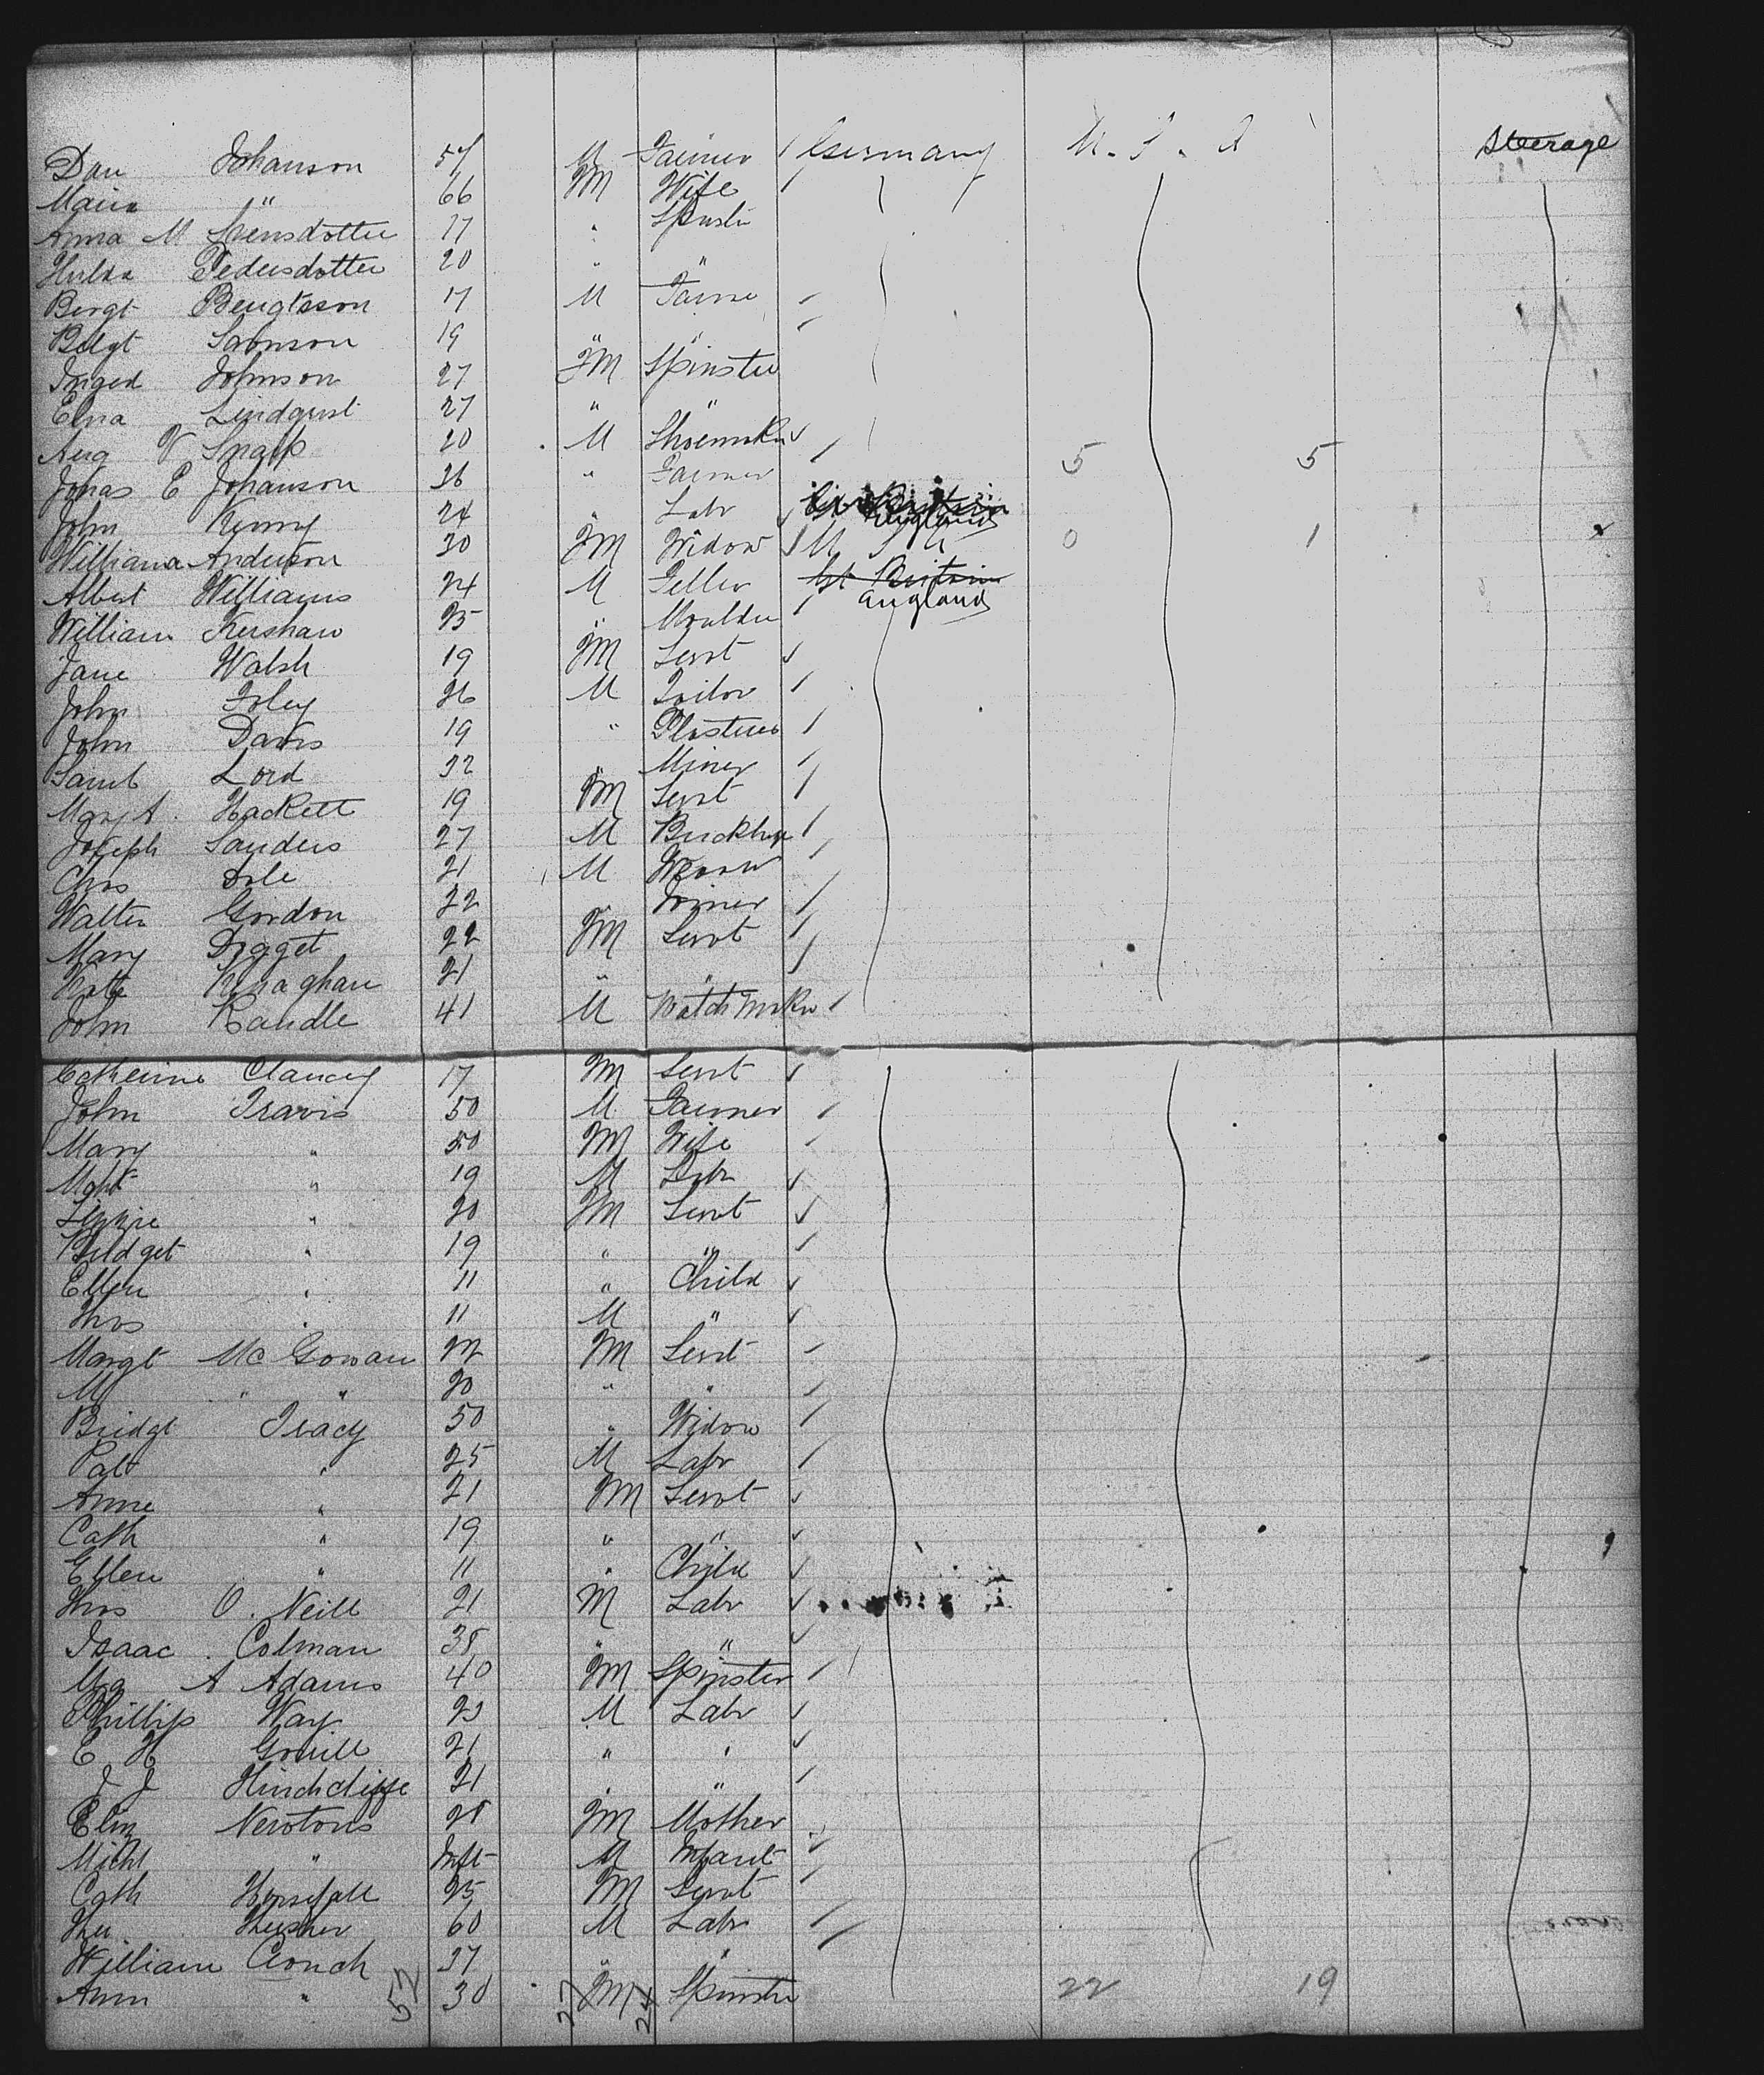 Dan Johanson 57 M Farmer Germany U.S.A Steerage
Maria " 66 FM Wife
Anna M Svensdotter 17 " Spinster
Hulda Pedersdotter 20 " "
Bengt Bengtsson 17 M Farmer
Bengt Samson 19 " "
Inged Johnson 27 FM Spinster
Elna Lindqvist 27 " "
Aug V Snask 20 M Shoemaker
Jonas E Johanson 26 " Farmer 5 5
John Kenny 24 " Labr Gt Britain England
Williama Anderson 30 FM Widow U S A 0 1
Albert Williams 24 M Feller Gt Britain England
William Kershaw 25 " Moulder
Jane Walsh 19 FM Servt
John Foley 26 M Tailor
John Davis 19 " Plasterer
Saml Lord 32 " Miner
Mary A. Hackett 19 FM Servt
Joseph Sanders 27 M Bricklayer
Chas Dole 21 M Weaver
Walter Gordon 22 " Joiner
Mary Dogget 22 FM Servt
Kate Kinaghan 21 " "
John Randle 41 M Watch Maker
Catherine Clancy 17 FM Servt
John Travis 50 M Farmer
Mary " 50 FM Wife
" 19 M Labr
Lizzie " 20 FM Servt
Bridget " 19 " "
Ellen " 11 " Child
Thos " 11 M "
Margt McGowan 22 FM Servt
M " " 20 " "
Bridgt Tracy 50 " Widow
Patk " 25 M Labr
Anne " 21 FM Servt
Cath " 19 " "
Ellen " 11 " Child
Thos O. Neill 21 M Labr
Isaac Colman 38 " "
A Adams 40 FM Spinster
Phillip Way 23 M Labr
E H 21 " "
J J Hinchcliffe 21 " "
Eliz Newtons 28 FM Mother
Michl " Inft M Infant
Cath Horsfall 25 FM Servt
60 M Labr
William Crouch 37 " "
Ann " 30 FM Spinster 22 19
52 27 24